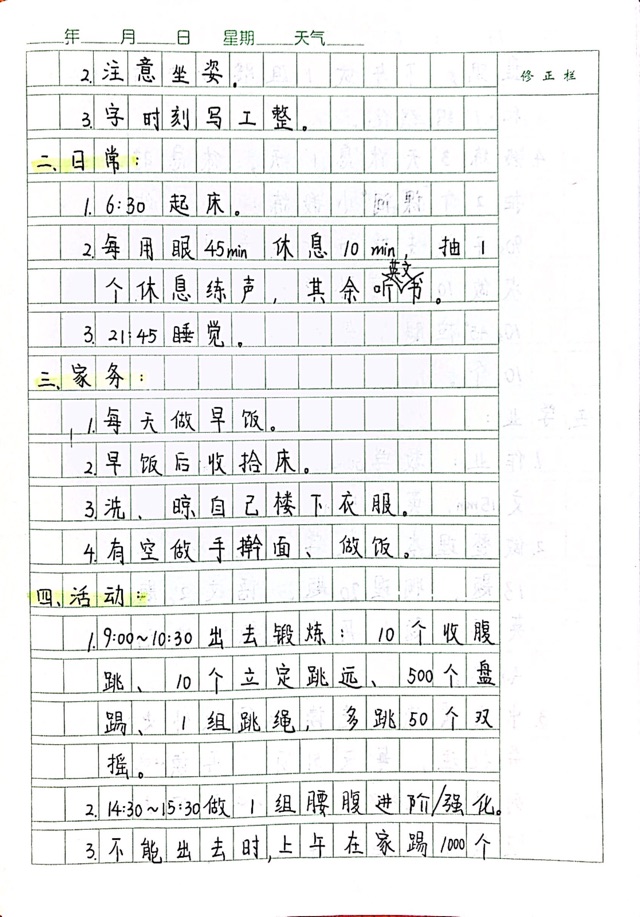 年 月 日 星期 天气
修正栏
2. 注意坐姿。
3. 字时刻写工整。
二、日常：
1. 6:30 起床。
2. 每用眼45min 休息10min，抽1
个休息练声，其余听英文书。
3. 21:45 睡觉。
三、家务：
1. 每天做早饭。
2. 早饭后收拾床。
3. 洗、晾自己楼下衣服。
4. 有空做手擀面、做饭。
四、活动：
1. 9:00~10:30 出去锻炼：10个收腹
跳、10个立定跳远、500个盘
踢、1组跳绳，多跳50个双
摇。
2. 14:30~15:30做1组腰腹进阶/强化。
3. 不能出去时，上午在家踢1000个